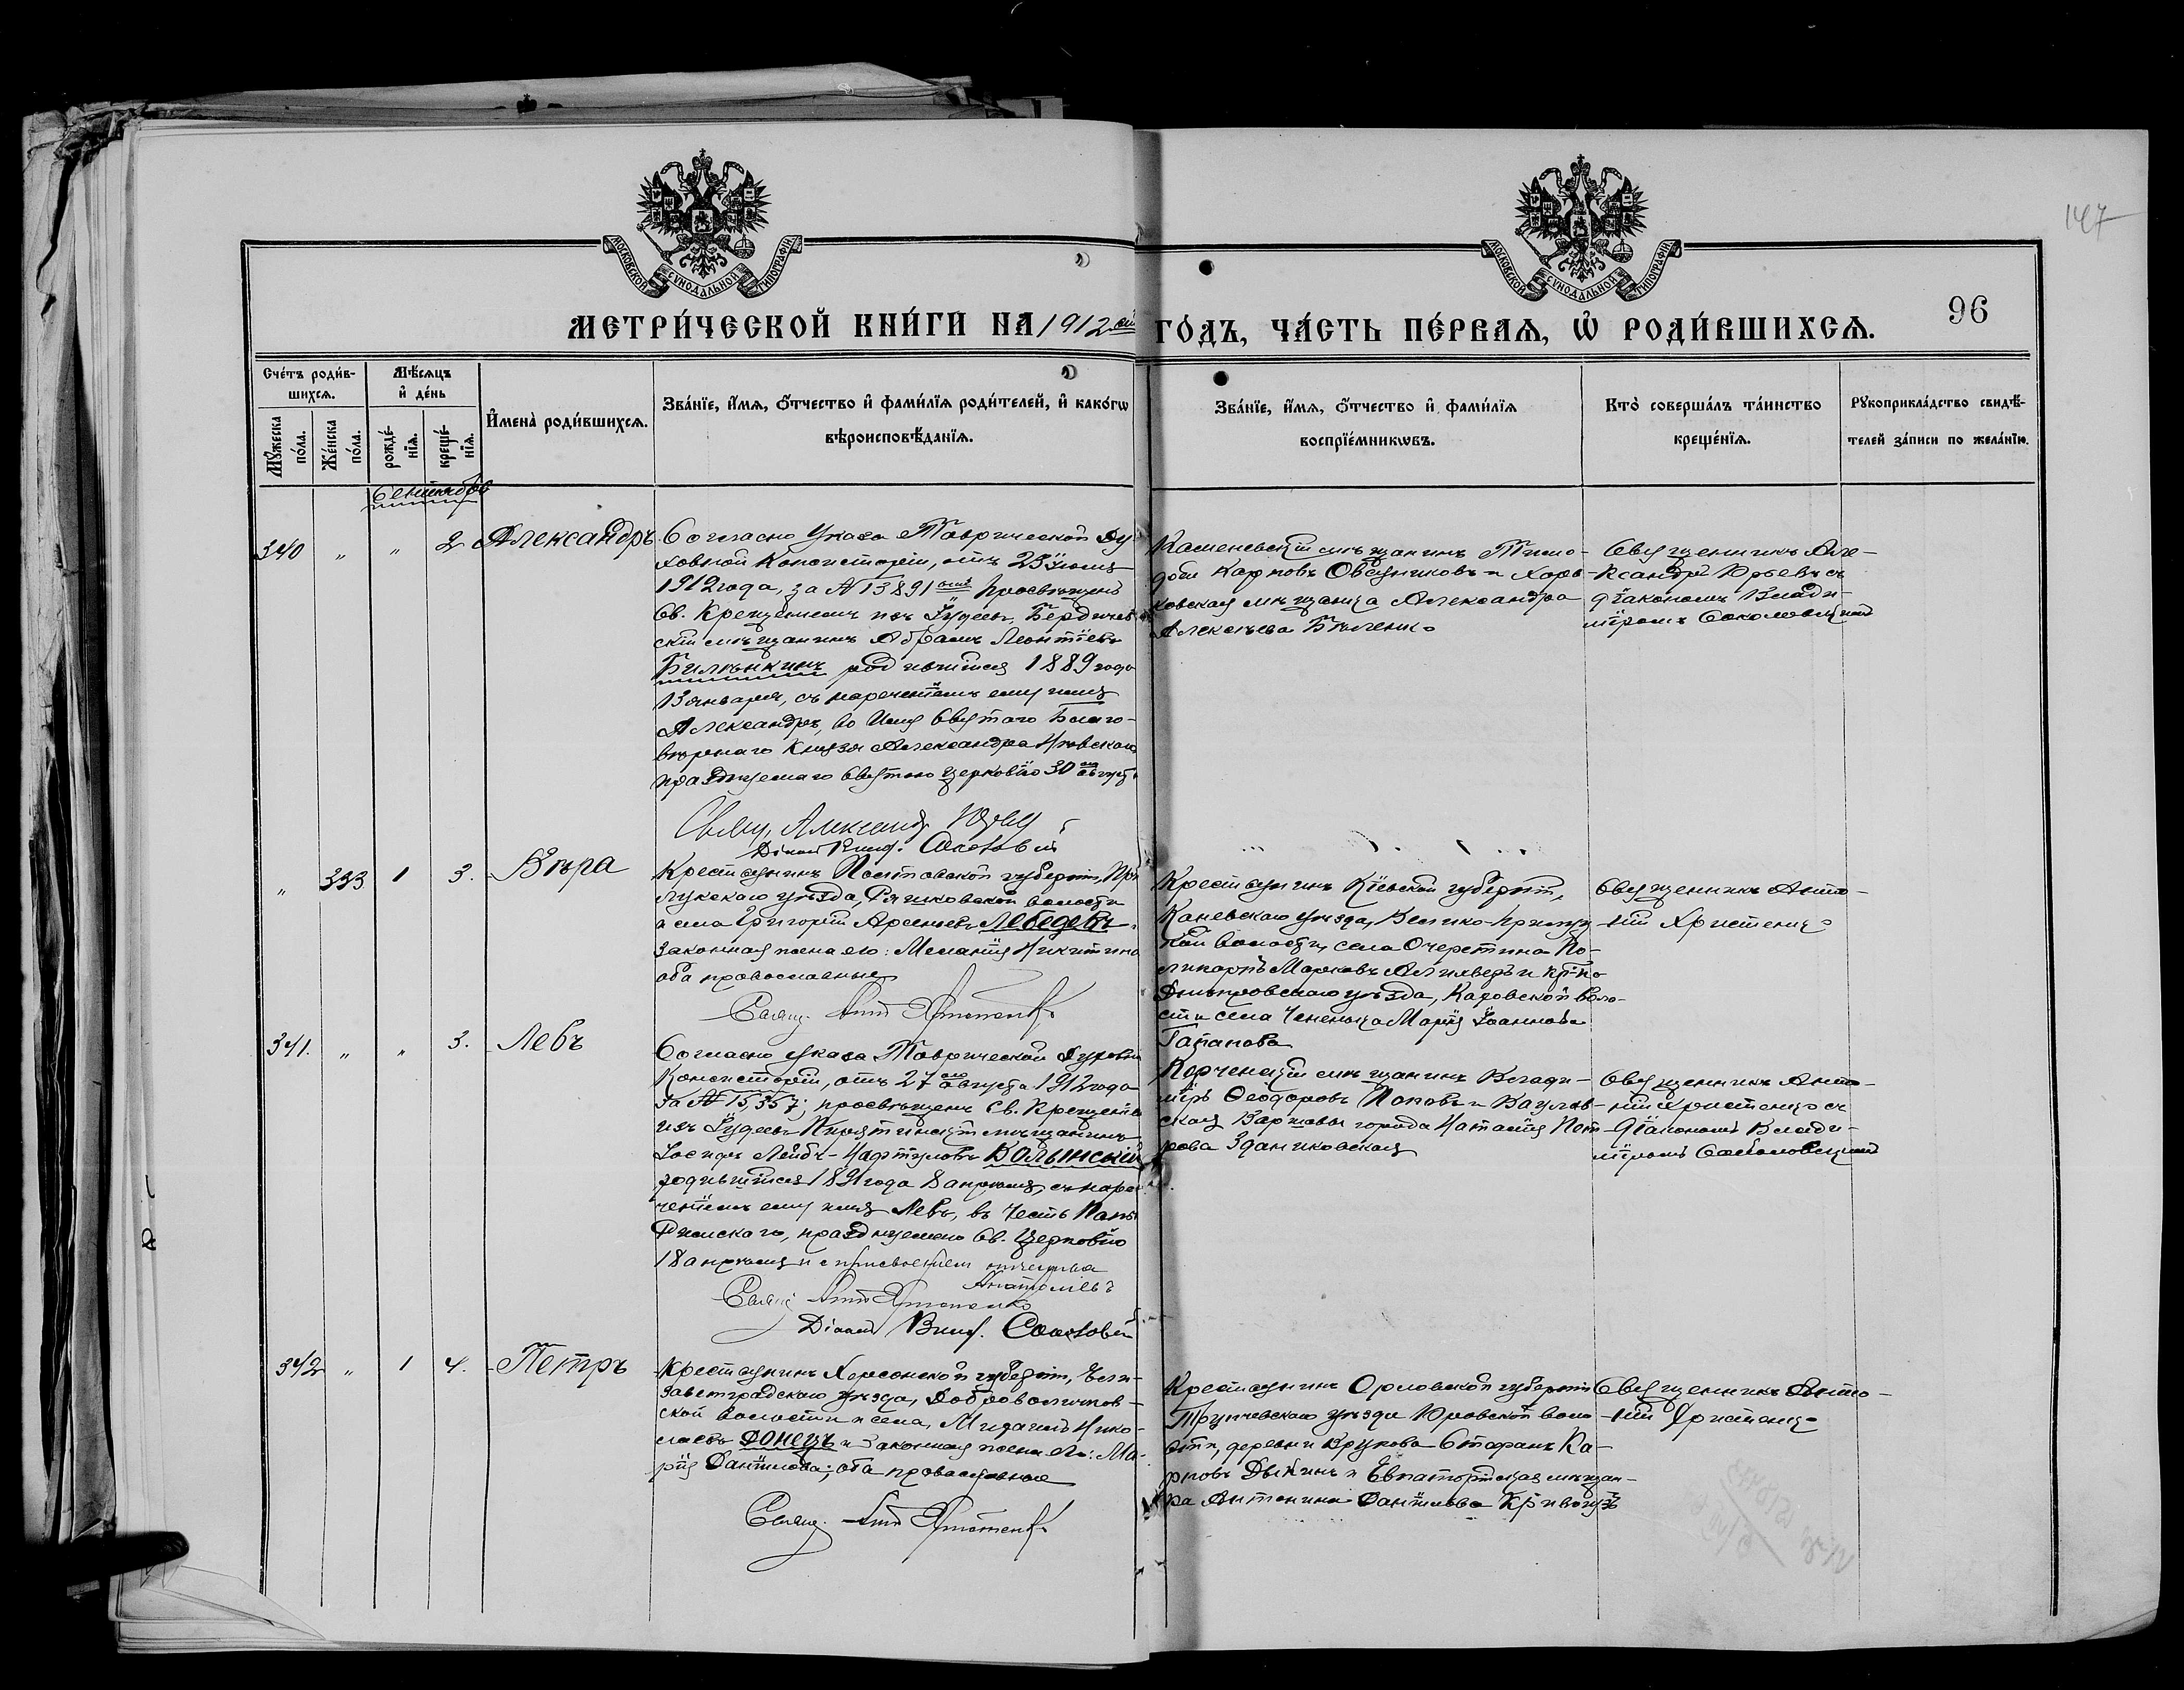 147
96
МОСКОВСКОЙ СѴНОДАЛЬНОЙ ТИПОГРАФІИ
МОСКОВСКОЙ СѴНОДАЛЬНОЙ ТИПОГРАФІИ
МЕТРИ́ЧЕСКОЙ КНИ́ГИ НА 1912 ый ГО́ДЪ, ЧА́СТЬ ПЕ́РВАѦ, Ѡ РОДИ́ВШИХСѦ.
Сче́тъ роди́в-
шихсѧ.
Мѣ́сѧцъ
и де́нь
Мꙋ́жеска
по́ла.
Же́нска
по́ла.
рожде́-
нїѧ.
креще́-
нїѧ.
И҆мена̀ роди́вшихсѧ.
Зва́нїе, и҆́мѧ, ѻ҆́тчество и҆ фами́лїѧ роди́телей, и҆ како́гѡ
вѣроисповѣ́данїѧ.
Зва́нїе, и҆́мѧ, ѻ҆́тчество и҆ фами́лїѧ
воспрїе́мникѡвъ.
Кто̀ соверша́лъ та́инство
креще́нїѧ.
Рꙋкоприкла́дство свидѣ́-
телей за́писи по жела́нїю.
Сентябрь
340 " " 2 Александръ
Согласно Указа Таврической Ду
ховной Консисторіи, отъ 23 Іюля
1912 года, за № 13891 просвѣщенъ
Св. Крещеніемъ изъ Іудеевъ, Бердичев
скій мѣщанинъ Абрамъ Леонтіевъ
Билѣнкинъ родившійся 1889 года
13 января, съ нареченіемъ ему имя
Александръ, во Имя Святаго Благо-
вѣрнаго Князя Александра Невскаго
празднуемаго Святою Церковію 30 августа
Свящ. Александръ Юрьев
Діаконъ Влад. Соколовскій
Каменевскій мѣщанинъ Тимо-
фей Карповъ Овсяниковъ и Харь-
ковская мѣщанка Александра
Алексѣева Бѣленко
Священникъ Але-
ксандръ Юрьевъ съ
діакономъ Влади-
міромъ Соколовскимъ
" 333 1 3. Вѣра
Крестьянинъ Полтавской губерніи, При
лукскаго уѣзда, Ряшковской волости
и села Григорій Арсеньевъ Лебедевъ
законная жена его: Меланія Никитина
оба православные
Свящ. Ант Христенко
Крестьянинъ Кіевской губерніи,
Каневскаго уѣзда, Велико-
кой волости, села Очеретина По-
ликарпъ Марковъ и кр-ка
Днѣпровскаго уѣзда, Каховской воло-
сти села Марія Іоаннова
Гапанова
Священникъ Анто-
ній Христенко
341. " " 3. Левъ
Согласно указа Таврической Духовной
Консисторіи, отъ 27 августа 1912 года
за № 15,357; просвѣщенъ Св. Крещеніемъ
изъ Іудеевъ Пирятинскій мѣщанинъ
Іосифъ Лейбъ-Нафтуловъ Волынскій
родившійся 1891 года 8 апрѣля, съ наре
ченіемъ ему имя Левъ, въ честь Папы
Римскаго, празднуемаго Св. Церковію
18 апрѣля и с присвоеніем отчества
Анатоліевъ
Свящ. Ант Христенко
Діаконъ Влад. Соколовскій
Керченскій мѣщанинъ Влади-
міръ Ѳеодоровъ Поповъ и
ская Варшавы города Наталія Пет-
рова Здановская
Священникъ Анто-
ній Христенко съ
діакономъ Влади-
міромъ Соколовскимъ
342 " 1 4. Петръ
Крестьянинъ Херсонской губерніи, Ели-
заветградскаго уѣзда, Добровеличков-
ской волости и села, Михаилъ Нико-
лаевъ Донецъ и законная жена его: Ма-
рія Даніилова; оба православные
Свящ. Ант Христенко
Крестьянинъ Орловской губерніи
Трубчевскаго уѣзда Юровской воло
сти, деревни Крукова Стефанъ Ка-
рповъ Дыкинъ и Евпаторійская мѣщан-
ка Антонина Даніилова
Священникъ Анто-
ній Христенко